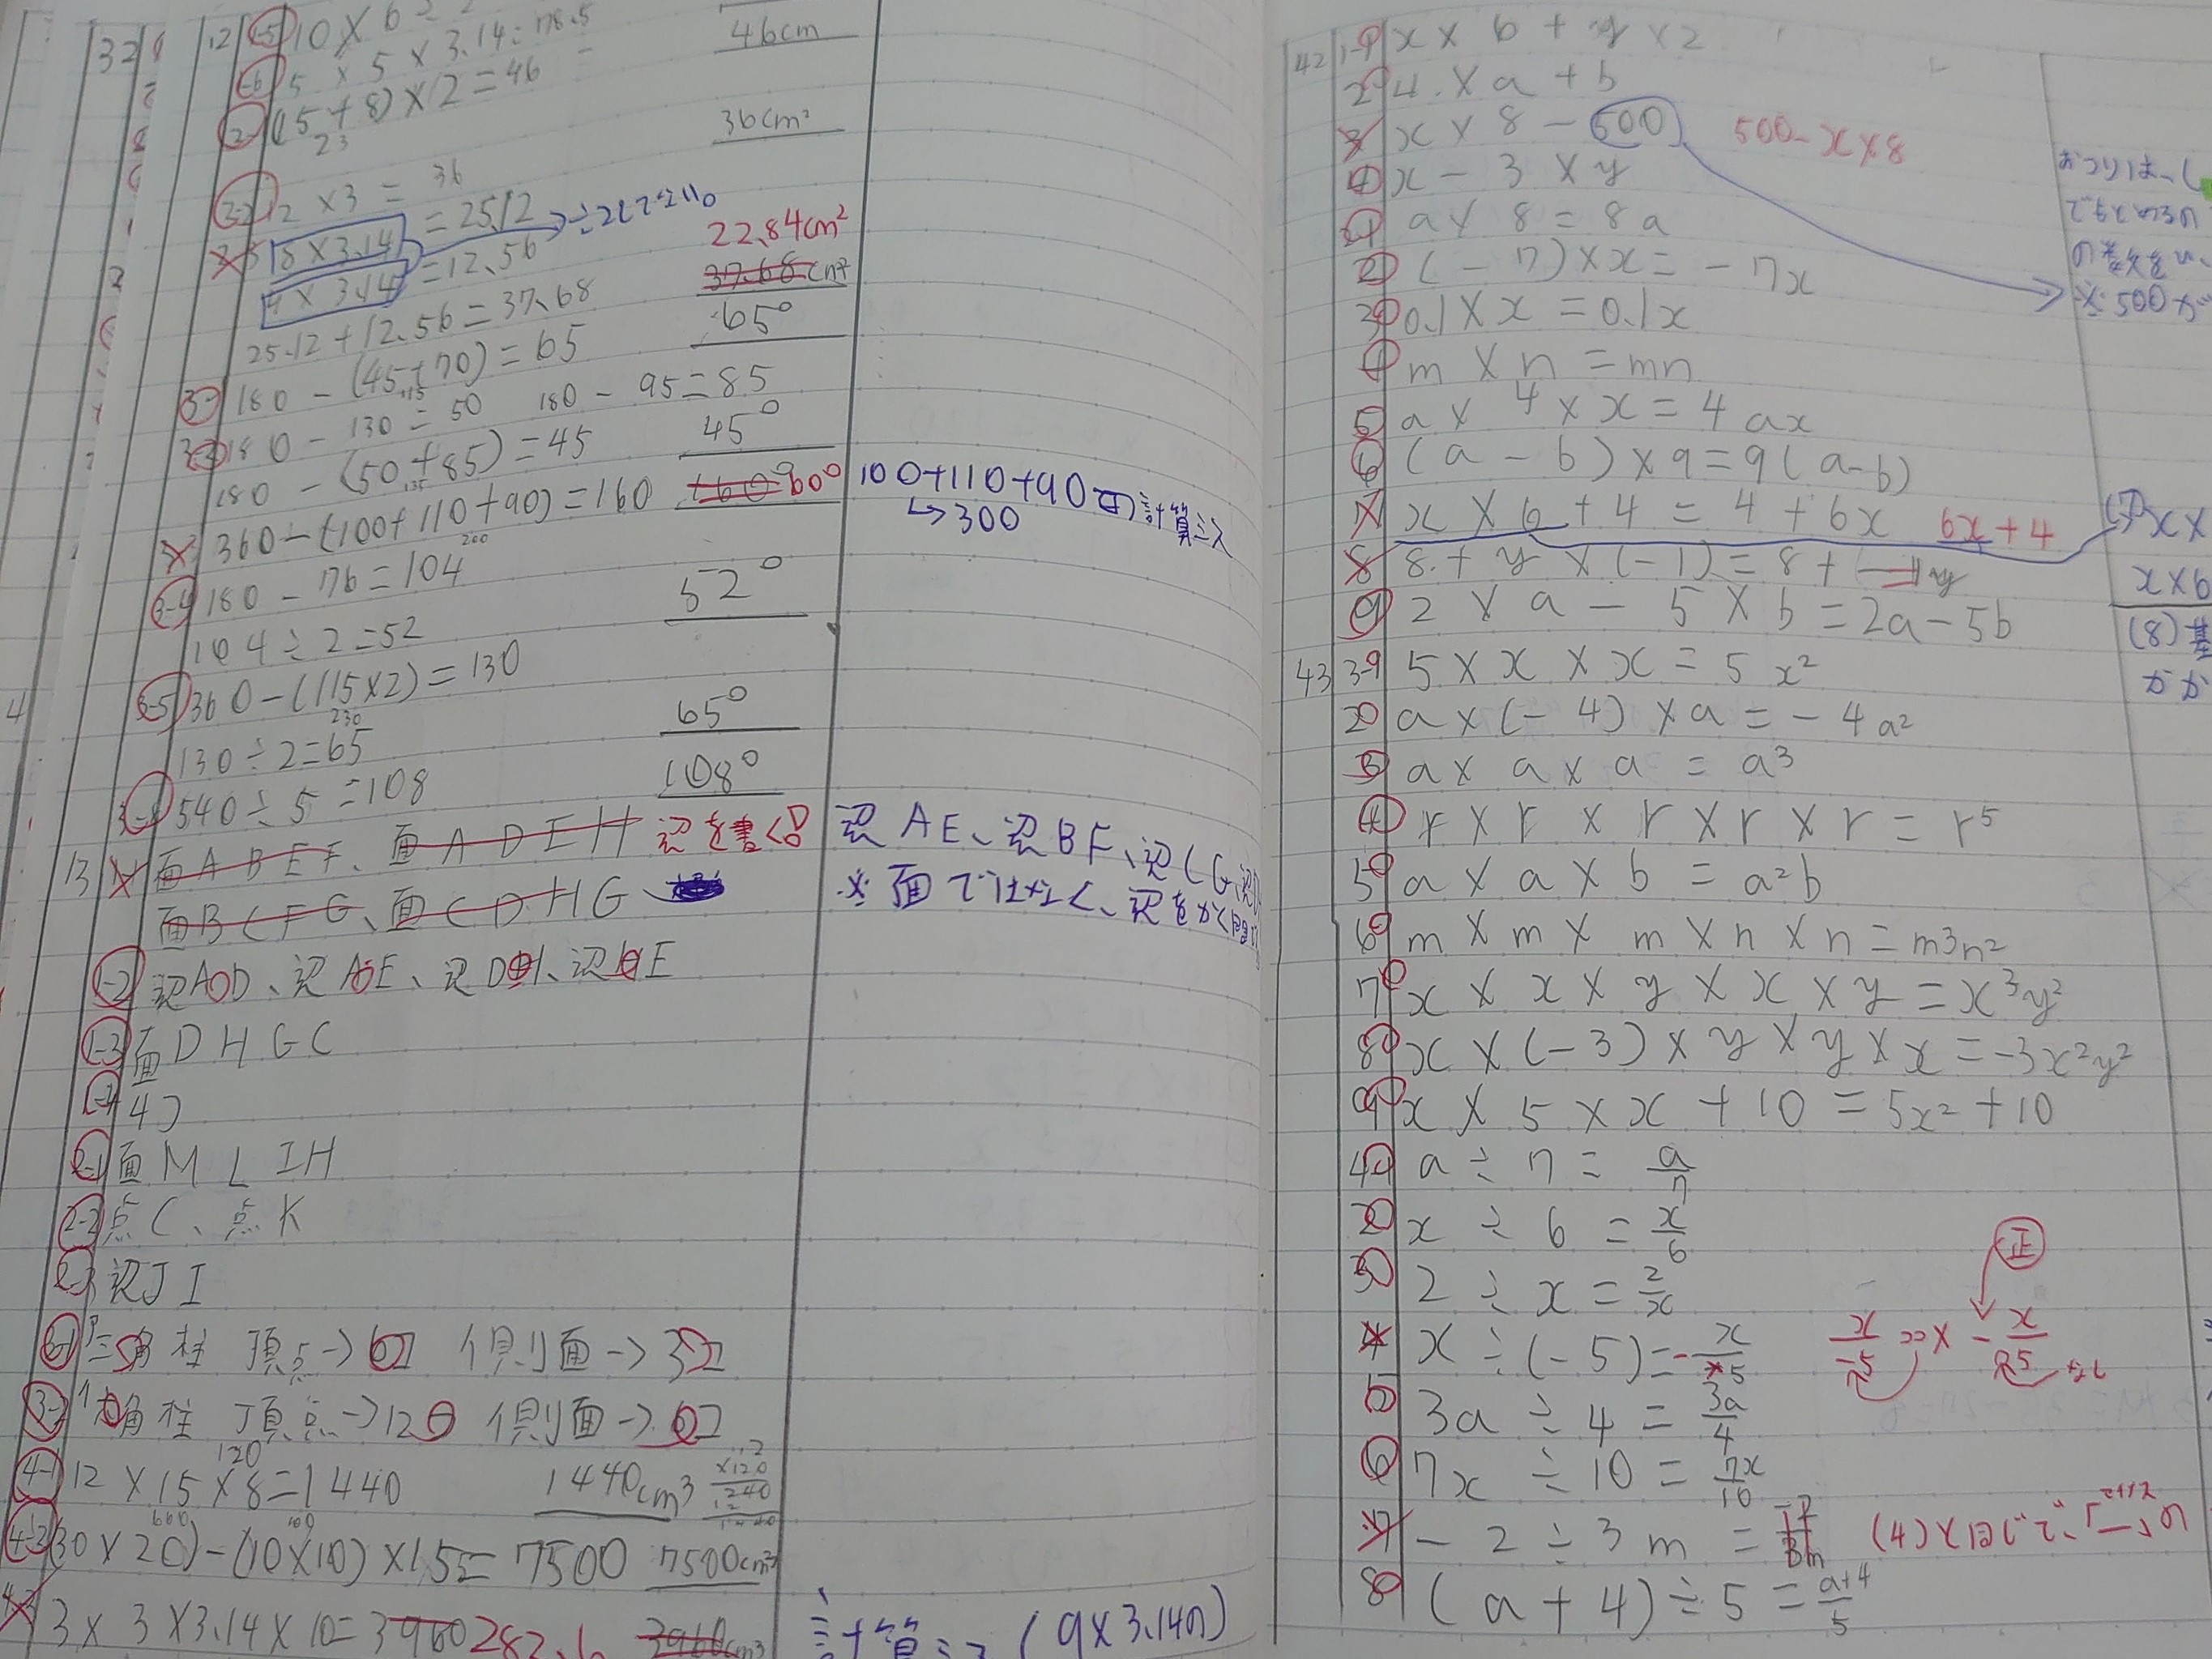 32
12 1-5 10×6=
1-6 5×5×3.14=78.5
2-1 (15+8)×2=46 46cm
23
2-2 12×3=36 36cm²
2-3 8×3.14=25.12 ÷2してない。 22.84cm²
4×3.14=12.56 37.68cm²
25.12+12.56=37.68
3-1 180-(45+70)=65 65°
115
3-2 180-130=50 180-95=85
180-(50+85)=45 45°
135
360-(100+110+90)=160 160° 60° 100+110+90の計算ミス
200 ↳300
3-4 180-76=104
104÷2=52 52°
3-5 360-(115×2)=130
230
130÷2=65 65°
3-6 540÷5=108 108°
13 面ABEF、面ADEH 辺を書く 辺AE、辺BF、辺CG、辺D
面BCFG、面CDHG、 ※面ではなく、辺をかく問
1-2 辺AD、辺AE、辺DH、辺HE
1-3 面DHGC
1-4 4つ
2-1 面MLIH
2-2 点C、点K
2-3 辺JI
3-1 三角柱 頂点→6コ 側面→3コ
3-2 六角柱 頂点→12コ 側面→6コ
120
4-1 12×15×8=1440 1440cm³
600 100
4-2 (30×20)-(10×10)×15=7500 7500cm³
4-3 3×3×3.14×10=3960 282.6 3960cm³ 計算ミス(9×3.14の)
42 1-1 x×6+y×2
2 4×a+b
3 x×8-500 500-x×8
4 x-3×y
2-1 a×8=8a
2 (-7)×x=-7x
3 0.1×x=0.1x
4 m×n=mn
5 a×4×x=4ax
6 (a-b)×9=9(a-b)
7 x×6+4=4+6x 6x+4
8 8+y×(-1)=8+
9 2×a-5×b=2a-5b
43 3-1 5×x×x=5x²
2 a×(-4)×a=-4a²
3 a×a×a=a³
4 r×r×r×r×r=r⁵
5 a×a×b=a²b
6 m×m×m×n×n=m3n²
7 x×x×y×x×y=x³y²
8 x×(-3)×y×y×x=-3x²y²
9 x×5×x+10=5x²+10
4-1 a÷7=a/7
2 x÷6=x/6
3 2÷x=2/x 正
4 x÷(-5)=-x/5 x/-5 => × -x/5
5 3a÷4=3a/4
6 7x÷10=7x/10
7 -2÷3m=-2/3m (4)と同じで、「-」の
8 (a+4)÷5=a+4/5